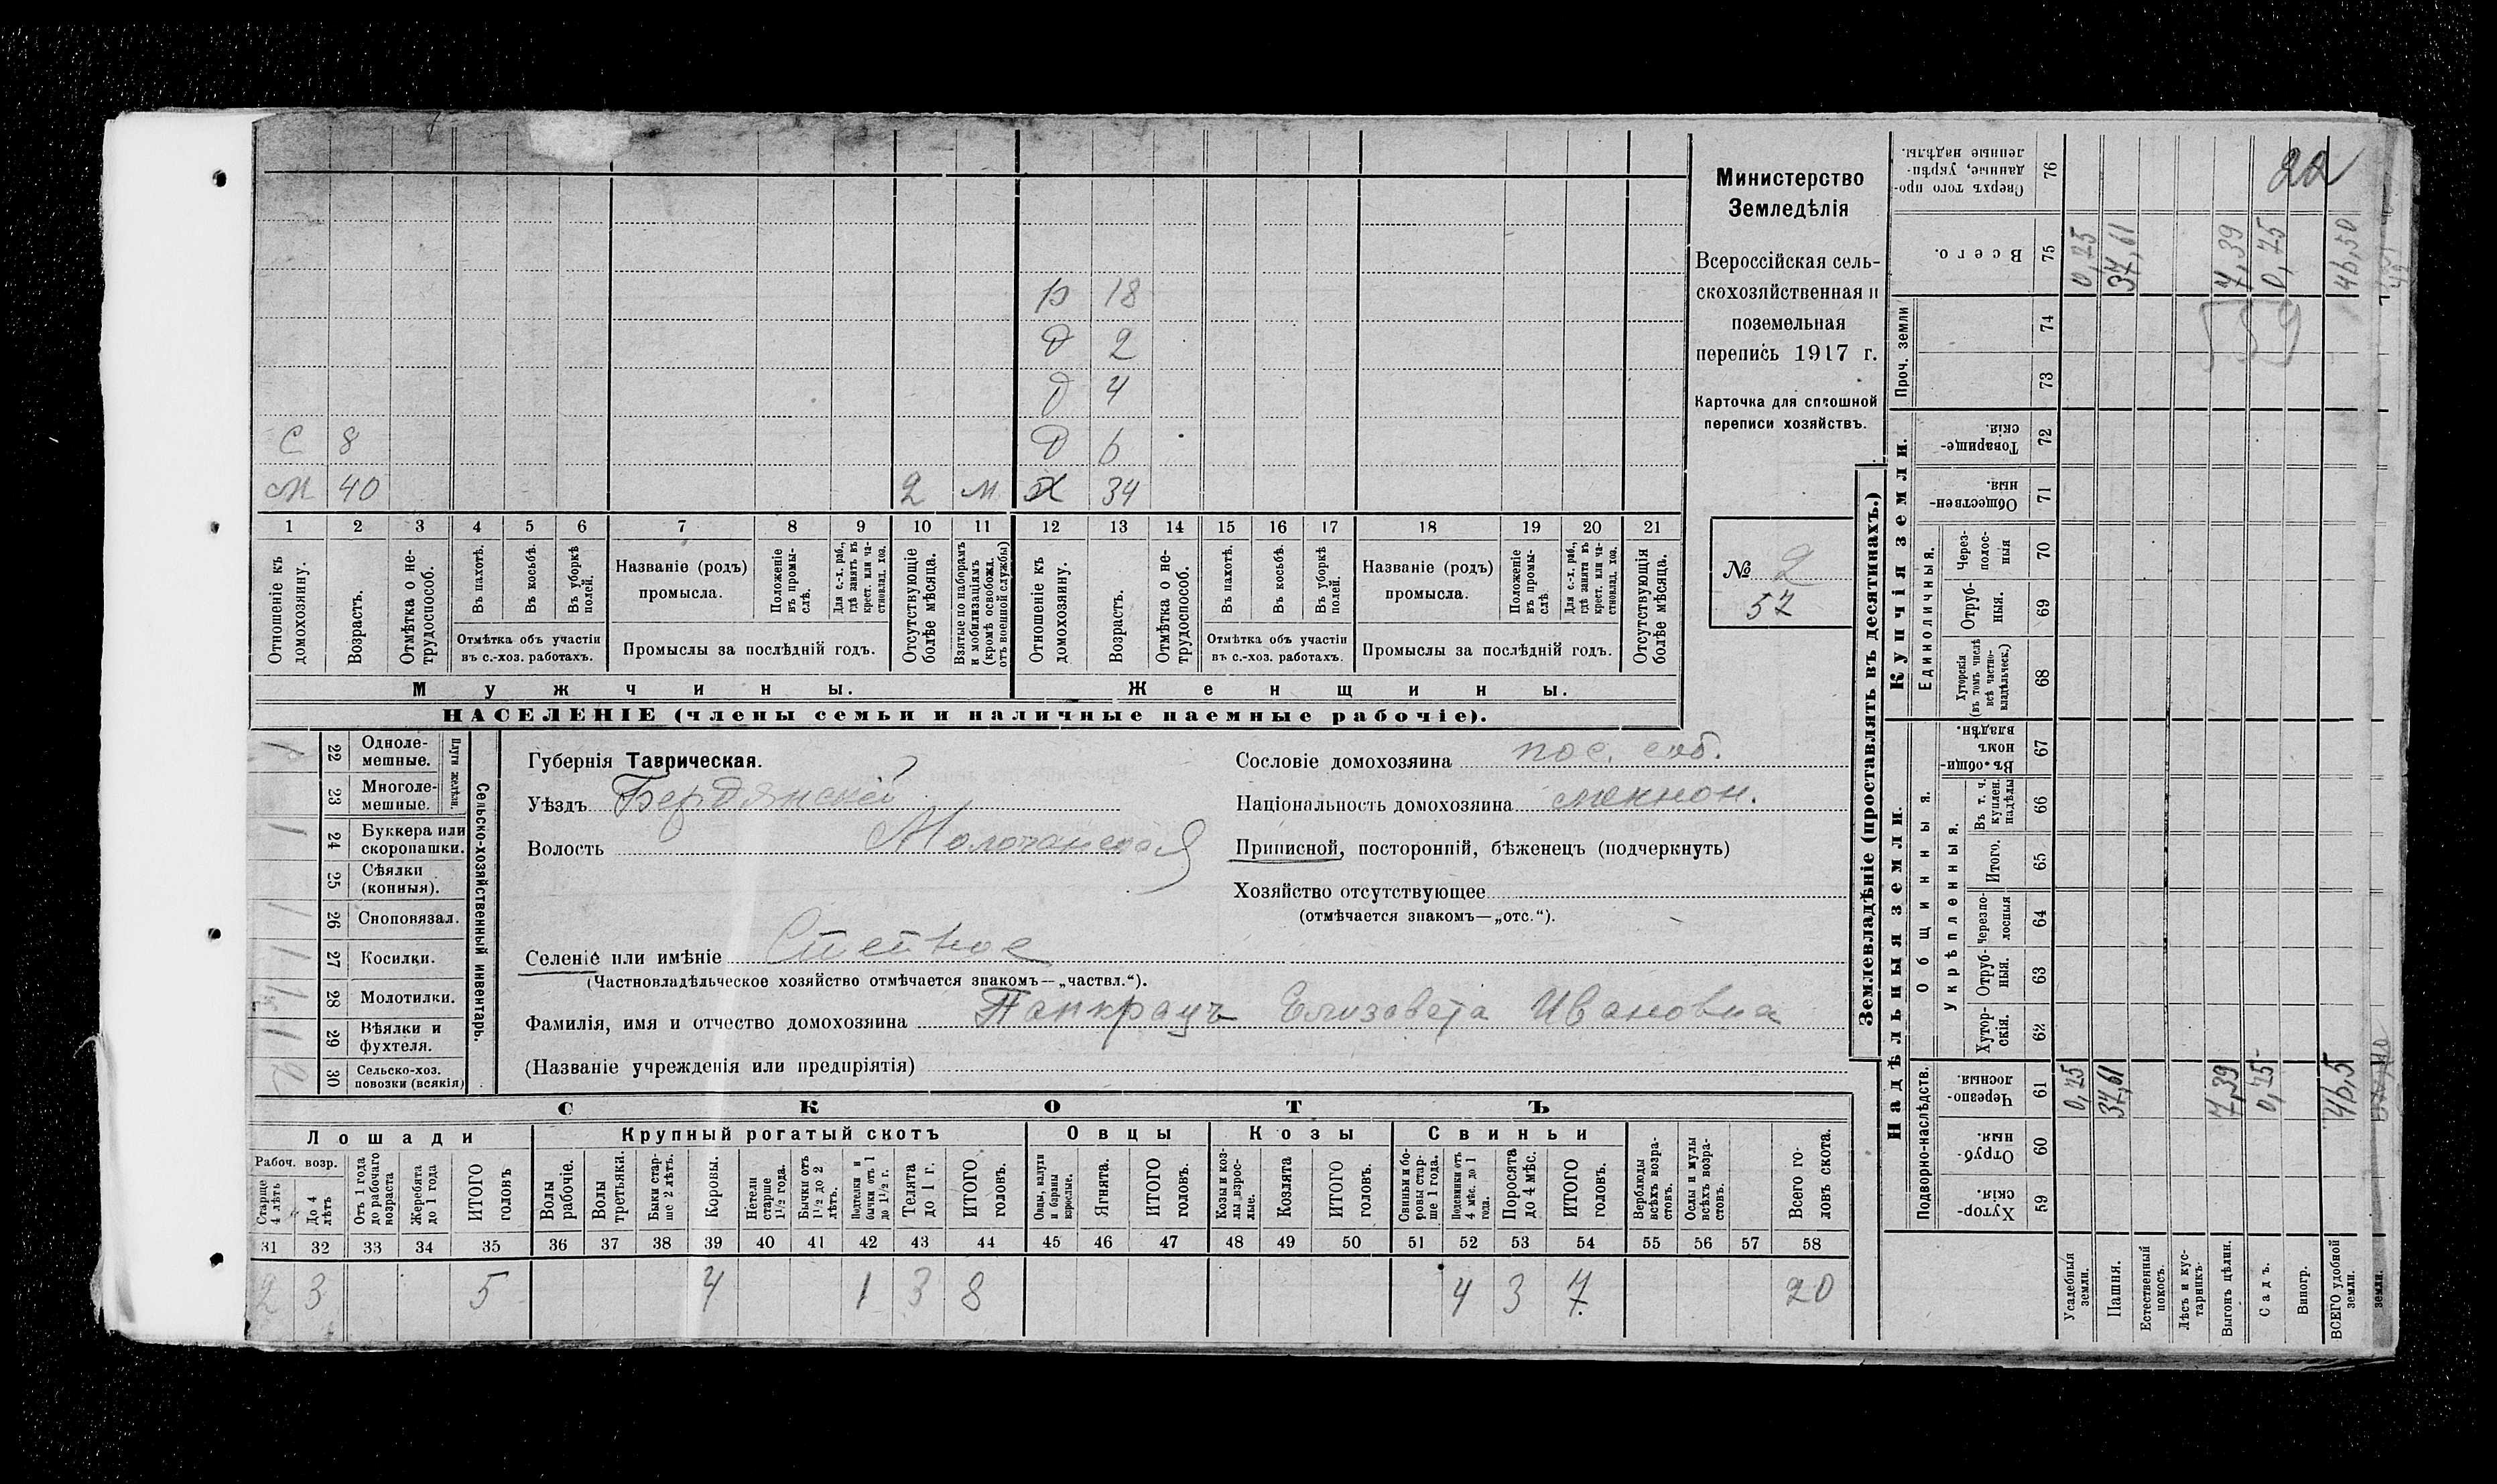 22
Министерство
Земледѣлія
Всероссійская сель-
скохозяйственная и
поземельная
перепись 1917 г.
Карточка для сплошной
переписи хозяйствъ.
№ 2
57
р 18
д 2
д 4
С 8 д 6
М 40 2 м х 34
1 2 3 4 5 6 7 8 9 10 11 12 13 14 15 16 17 18 19 20 21
Отношеніе къ домохозяину.
Возрастъ.
Отмѣтка о не-трудоспособ.
Въ пахотѣ.
Въ косьбѣ.
Въ уборкѣ полей.
Отмѣтка объ участіи
въ с.-хоз. работахъ.
Названіе (родъ)
промысла.
Положеніе въ промы-слѣ.
Для с.-х. раб., гдѣ занятъ въ крест. или ча-стновлад. хоз.
Промыслы за послѣдній годъ.
Отсутствующіе болѣе мѣсяца.
Взятые по наборамъ и мобилизаціямъ (кромѣ освобожд. отъ военной службы)
Отношеніе къ домохозяину.
Возрастъ.
Отмѣтка о не-трудоспособ.
Въ пахотѣ.
Въ косьбѣ.
Въ уборкѣ полей.
Отмѣтка объ участіи
въ с.-хоз. работахъ.
Названіе (родъ)
промысла.
Положеніе въ промы-слѣ.
Для с.-х. раб., гдѣ занята въ крест. или ча-стновлад. хоз.
Промыслы за послѣдній годъ.
Отсутствующія болѣе мѣсяца.
Мужчины. Женщины.
НАСЕЛЕНІЕ (члены семьи и наличные наемные рабочіе).
Сельско-хозяйственный инвентарь.
Плуги желѣзн.
22 Одноле-мешные.
23 Многоле-мешные.
24 Буккера или скоропашки. 1
25 Сѣялки (конныя).
26 Сноповязал. 1
27 Косилки. 1
28 Молотилки. 1
29 Вѣялки и фухтеля. 1
30 Сельско-хоз. повозки (всякія) 2
Губернія Таврическая.
Уѣздъ Бердянскій
Волость Молочанская
Селеніе или имѣніе Степное
(Частновладѣльческое хозяйство отмѣчается знакомъ—„частвл.“).
Фамилія, имя и отчество домохозяина Панкрацъ Елизавета Ивановна
(Названіе учрежденія или предпріятія)
Сословіе домохозяина пос. соб.
Національность домохозяина меннон.
Приписной, посторонній, бѣженецъ (подчеркнуть)
Хозяйство отсутствующее
(отмѣчается знакомъ—„отс.“).
СКОТЪ
Лошади Крупный рогатый скотъ Овцы Козы Свиньи
Рабоч. возр.
Старше 4 лѣтъ
До 4 лѣтъ
Отъ 1 года до рабочаго возраста
Жеребята до 1 года
ИТОГО головъ
Волы рабочіе.
Волы третьяки.
Быки стар-ше 2 лѣтъ.
Коровы.
Нетели старше 1½ года.
Бычки отъ 1½ до 2 лѣтъ.
Подтелки и бычки отъ 1 до 1½ г.
Телята до 1 г.
ИТОГО головъ.
Овцы, валухи и бараны взрослые.
Ягнята.
ИТОГО головъ.
Козы и коз-лы взрос-лые.
Козлята
ИТОГО головъ.
Свиньи и бо-ровы стар-ше 1 года.
Подсвинки отъ 4 мѣс. до 1 года.
Поросята до 4 мѣс.
ИТОГО головъ.
Верблюды всѣхъ возра-стовъ.
Ослы и мулы всѣхъ возра-стовъ.
Всего го-ловъ скота.
31 32 33 34 35 36 37 38 39 40 41 42 43 44 45 46 47 48 49 50 51 52 53 54 55 56 57 58
2 3 5 4 1 3 8 4 3 7 20
Землевладѣніе (проставлять въ десятинахъ.)
Надѣльныя земли. Купчія земли. Проч. земли
Подворно-наслѣдств.
Общинныя.
Укрѣпленныя.
Единоличныя.
59 Хутор-скія.
60 Отруб-ныя.
61 Черезпо-лосныя.
62 Хутор-скія.
63 Отруб-ныя.
64 Черезпо-лосныя
65 Итого.
66 Въ т. ч. куплен. надѣлы
67 Въ общи-номъ владѣн.
68 Хуторскія (въ томъ числѣ всѣ частно-владѣльческ.)
69 Отруб-ныя.
70 Через-полос-ныя
71 Обществен-ныя.
72 Товарище-скія.
73
74
75 Всего.
76 Сверхъ того про-данные, укрѣп-ленные надѣлы.
Усадебныя земли. 0,25 0,25
Пашня. 37,61 37,61
Естественный покосъ.
Лѣсъ и кус-тарникъ.
Выгонъ цѣлин. 7,39 7,39
Садъ. 0,75
Виногр.
ВСЕГО удобной земли. 46,5 46,50
земли.
559